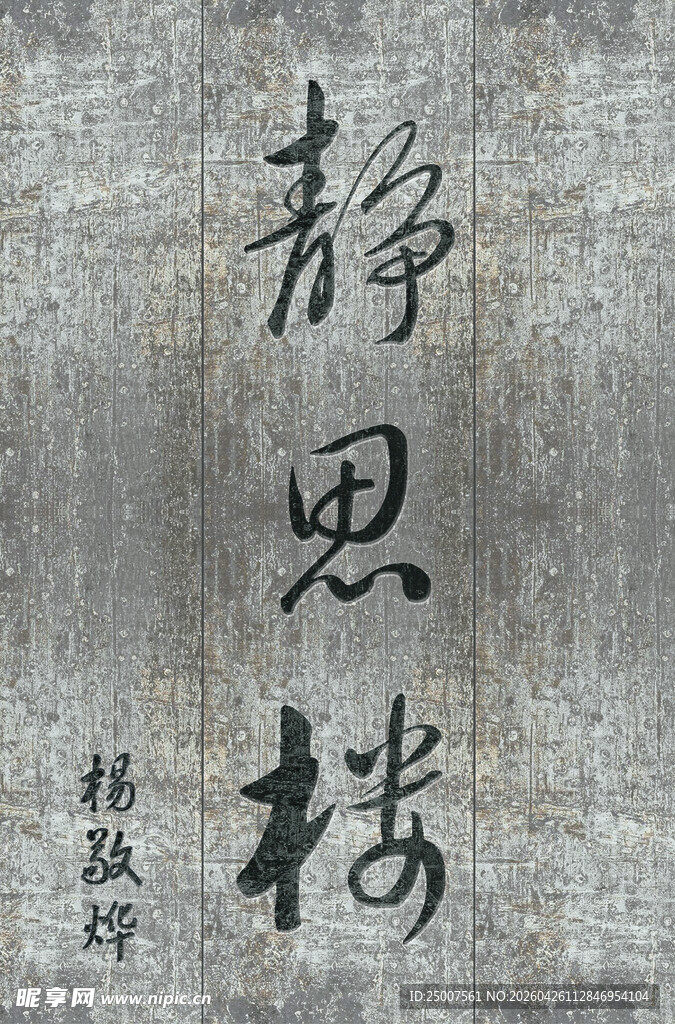 静思楼
杨敬烨
昵享网 www.nipic.cn
ID:25007561 NO:20260426112846954104